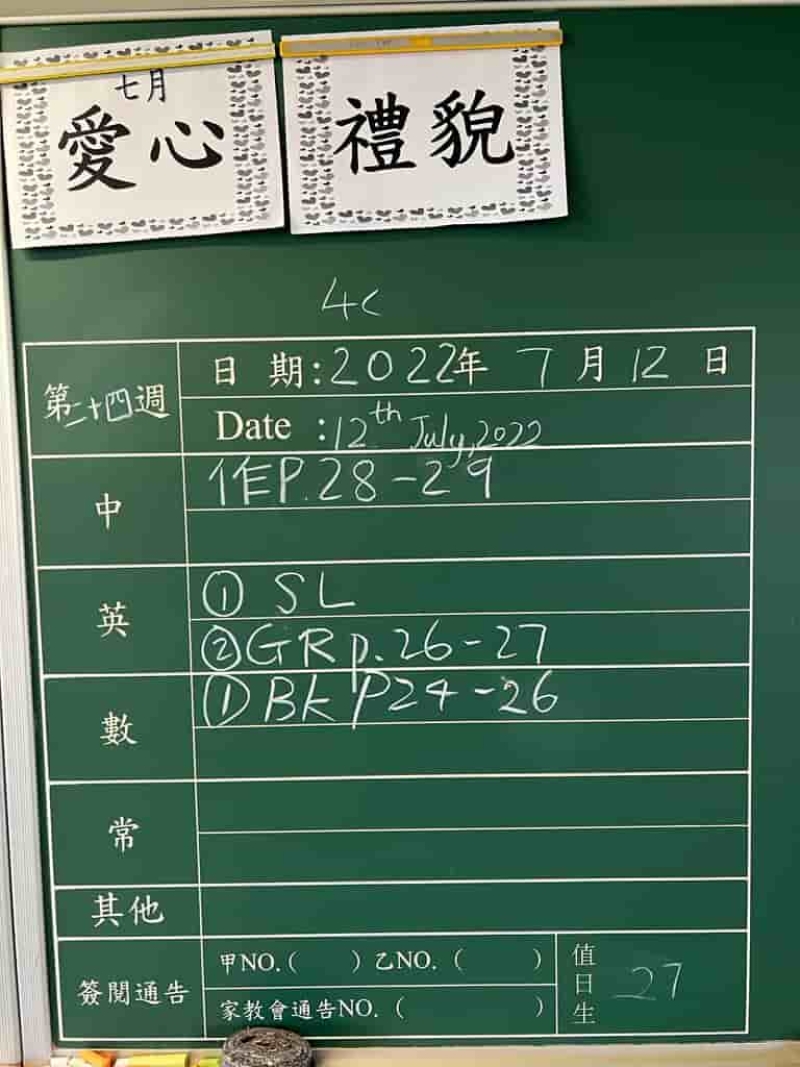 七月
愛心
禮貌
4C
第二十四週
日 期:2022年 7月12日
Date :12th July,2022
中
作P.28-29
英
① SL
②GR p.26-27
數
① BK P24-26
常
其他
簽閱通告
甲NO.( ) 乙NO.( )
家教會通告NO.( )
值日生 27